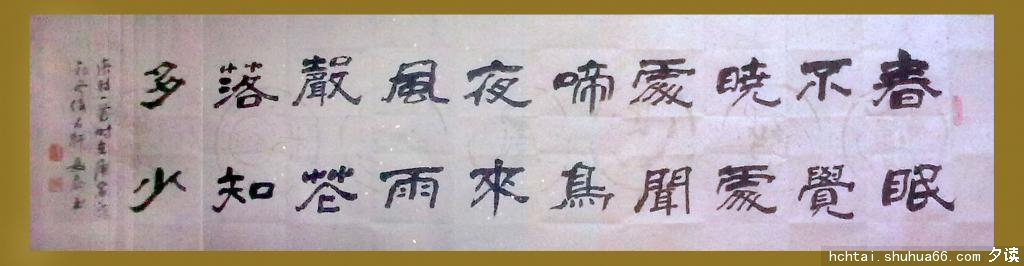 春眠
不覺
曉處
處聞
啼鳥
夜來
風雨
聲花
落知
多少
hchtai.shuhua66.com 夕读